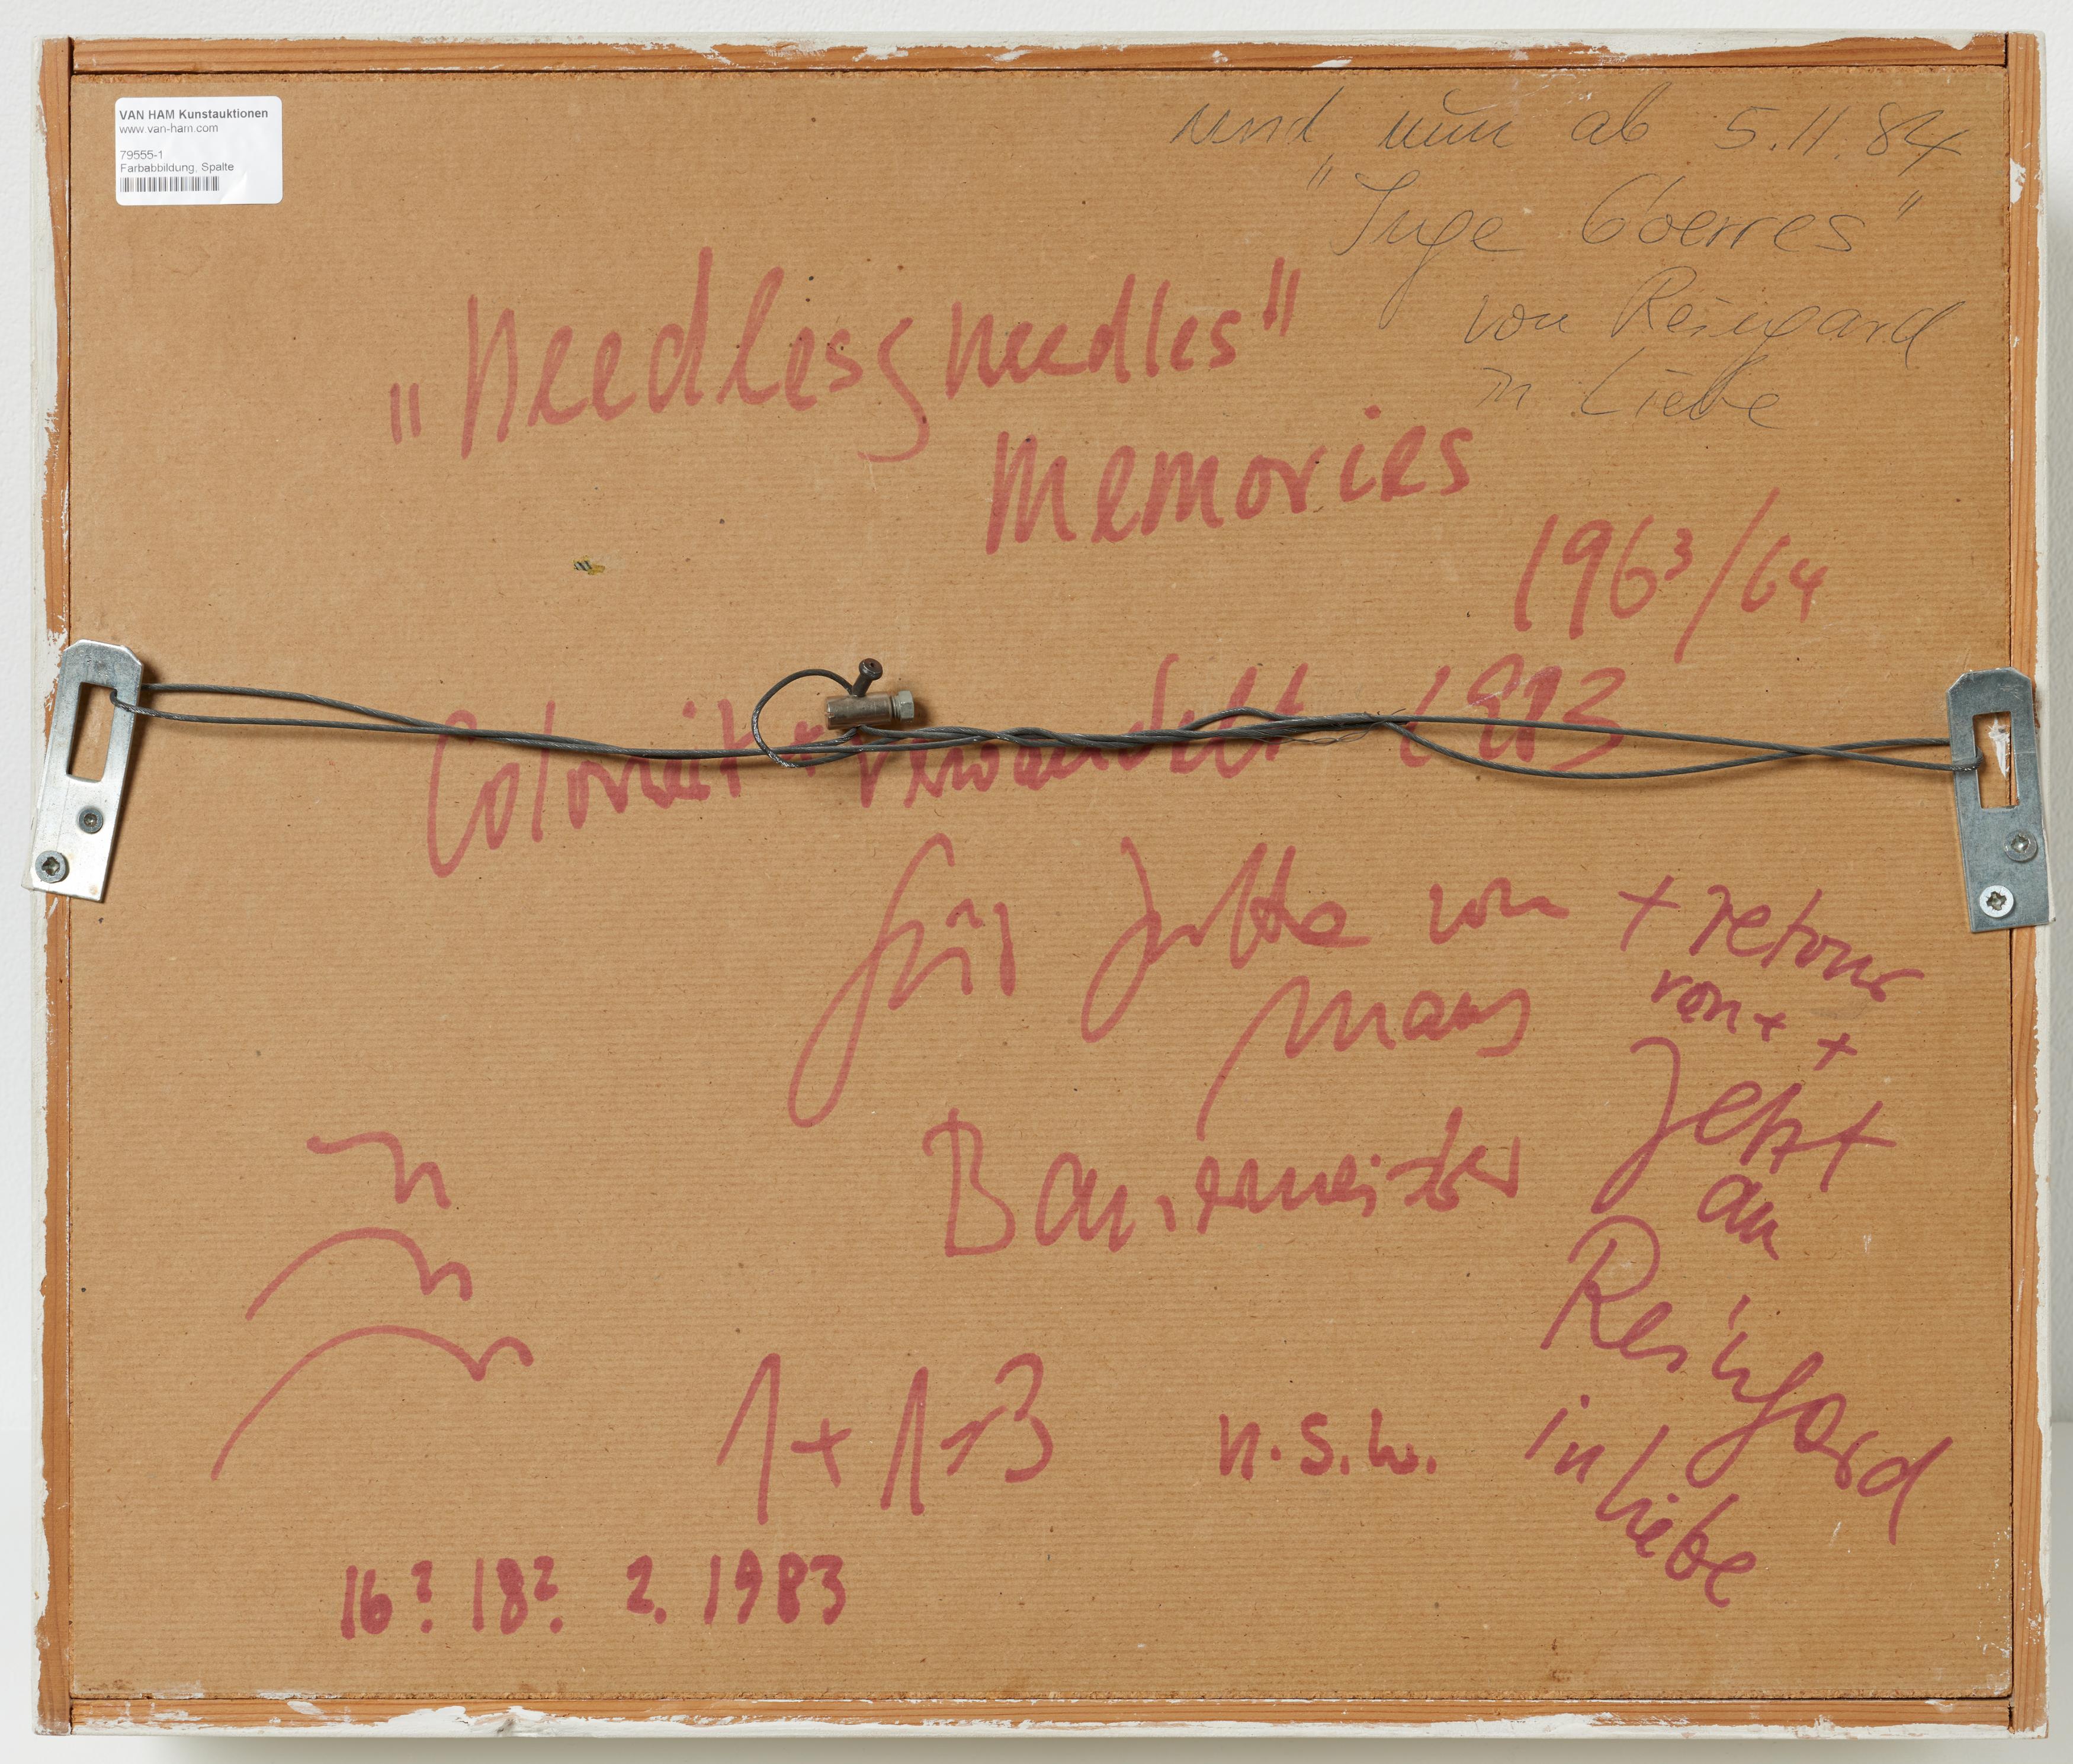 VAN HAM Kunstauktionen
www.van-ham.com
79555-1
Farbabbildung, Spalte
und nun ab 5.11.84
"Inge Goerres"
von Reingard
in Liebe
„Needless needles"
Memories
1963/64
Coloriert + verwandelt 1983
für Jutta von
Mary
Bauermeister
+ retour
von + +
Jetzt
an
Reingard
in Liebe
1+1=3 u.s.w.
16? 18? 2. 1983